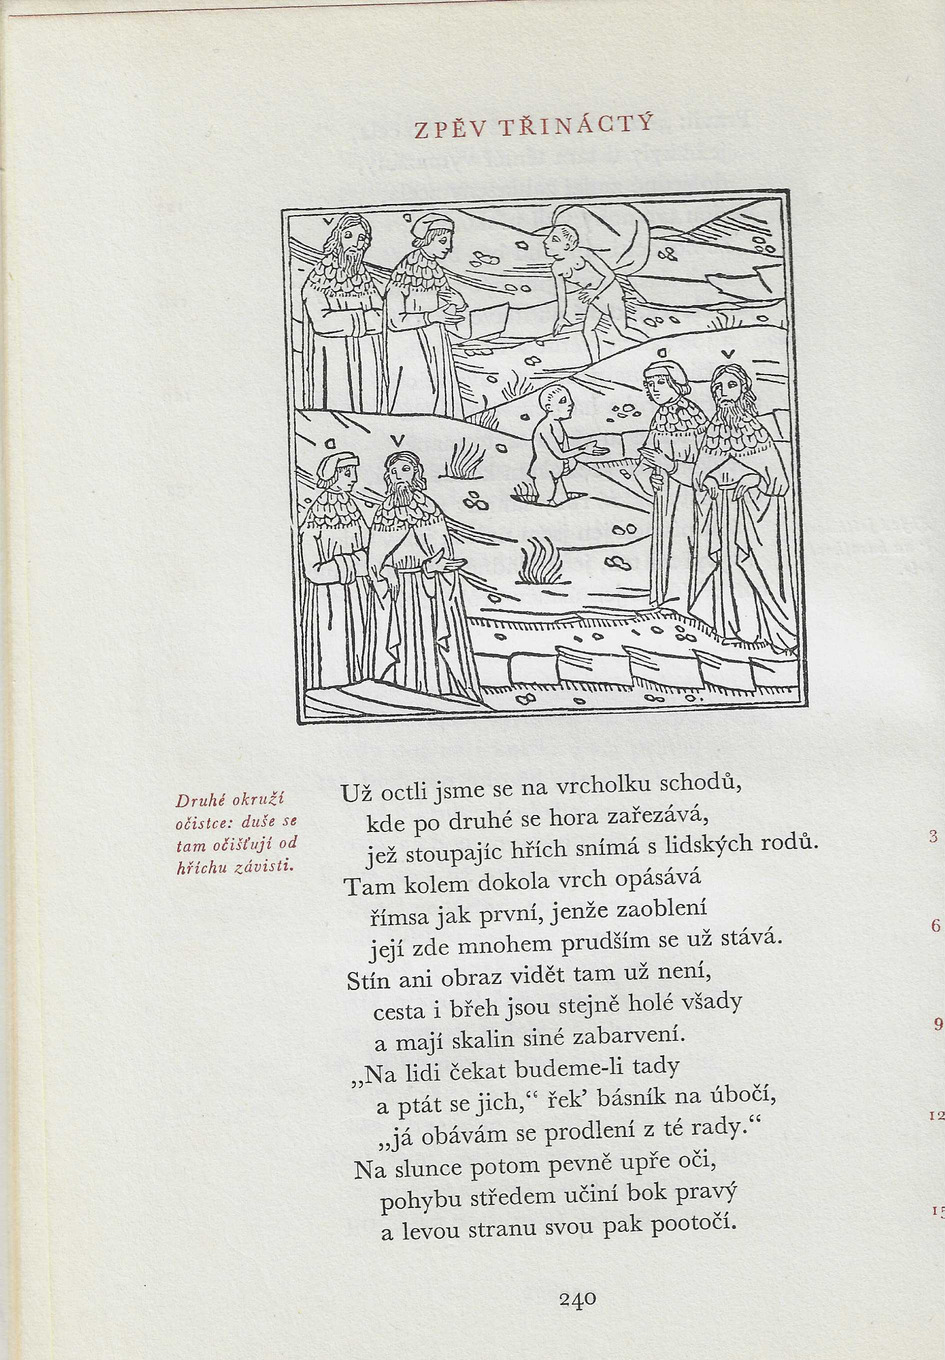 ZPĚV TŘINÁCTÝ
V D
D V
D V
Druhé okruží
očistce: duše se
tam očišťují od
hříchu závisti.
Už octli jsme se na vrcholku schodů,
kde po druhé se hora zařezává,
jež stoupajíc hřích snímá s lidských rodů.
3
Tam kolem dokola vrch opásává
římsa jak první, jenže zaoblení
6
její zde mnohem prudším se už stává.
Stín ani obraz vidět tam už není,
cesta i břeh jsou stejně holé všady
9
a mají skalin siné zabarvení.
„Na lidi čekat budeme-li tady
a ptát se jich,“ řek’ básník na úbočí,
12
„já obávám se prodlení z té rady.“
Na slunce potom pevně upře oči,
pohybu středem učiní bok pravý
15
a levou stranu svou pak pootočí.
240